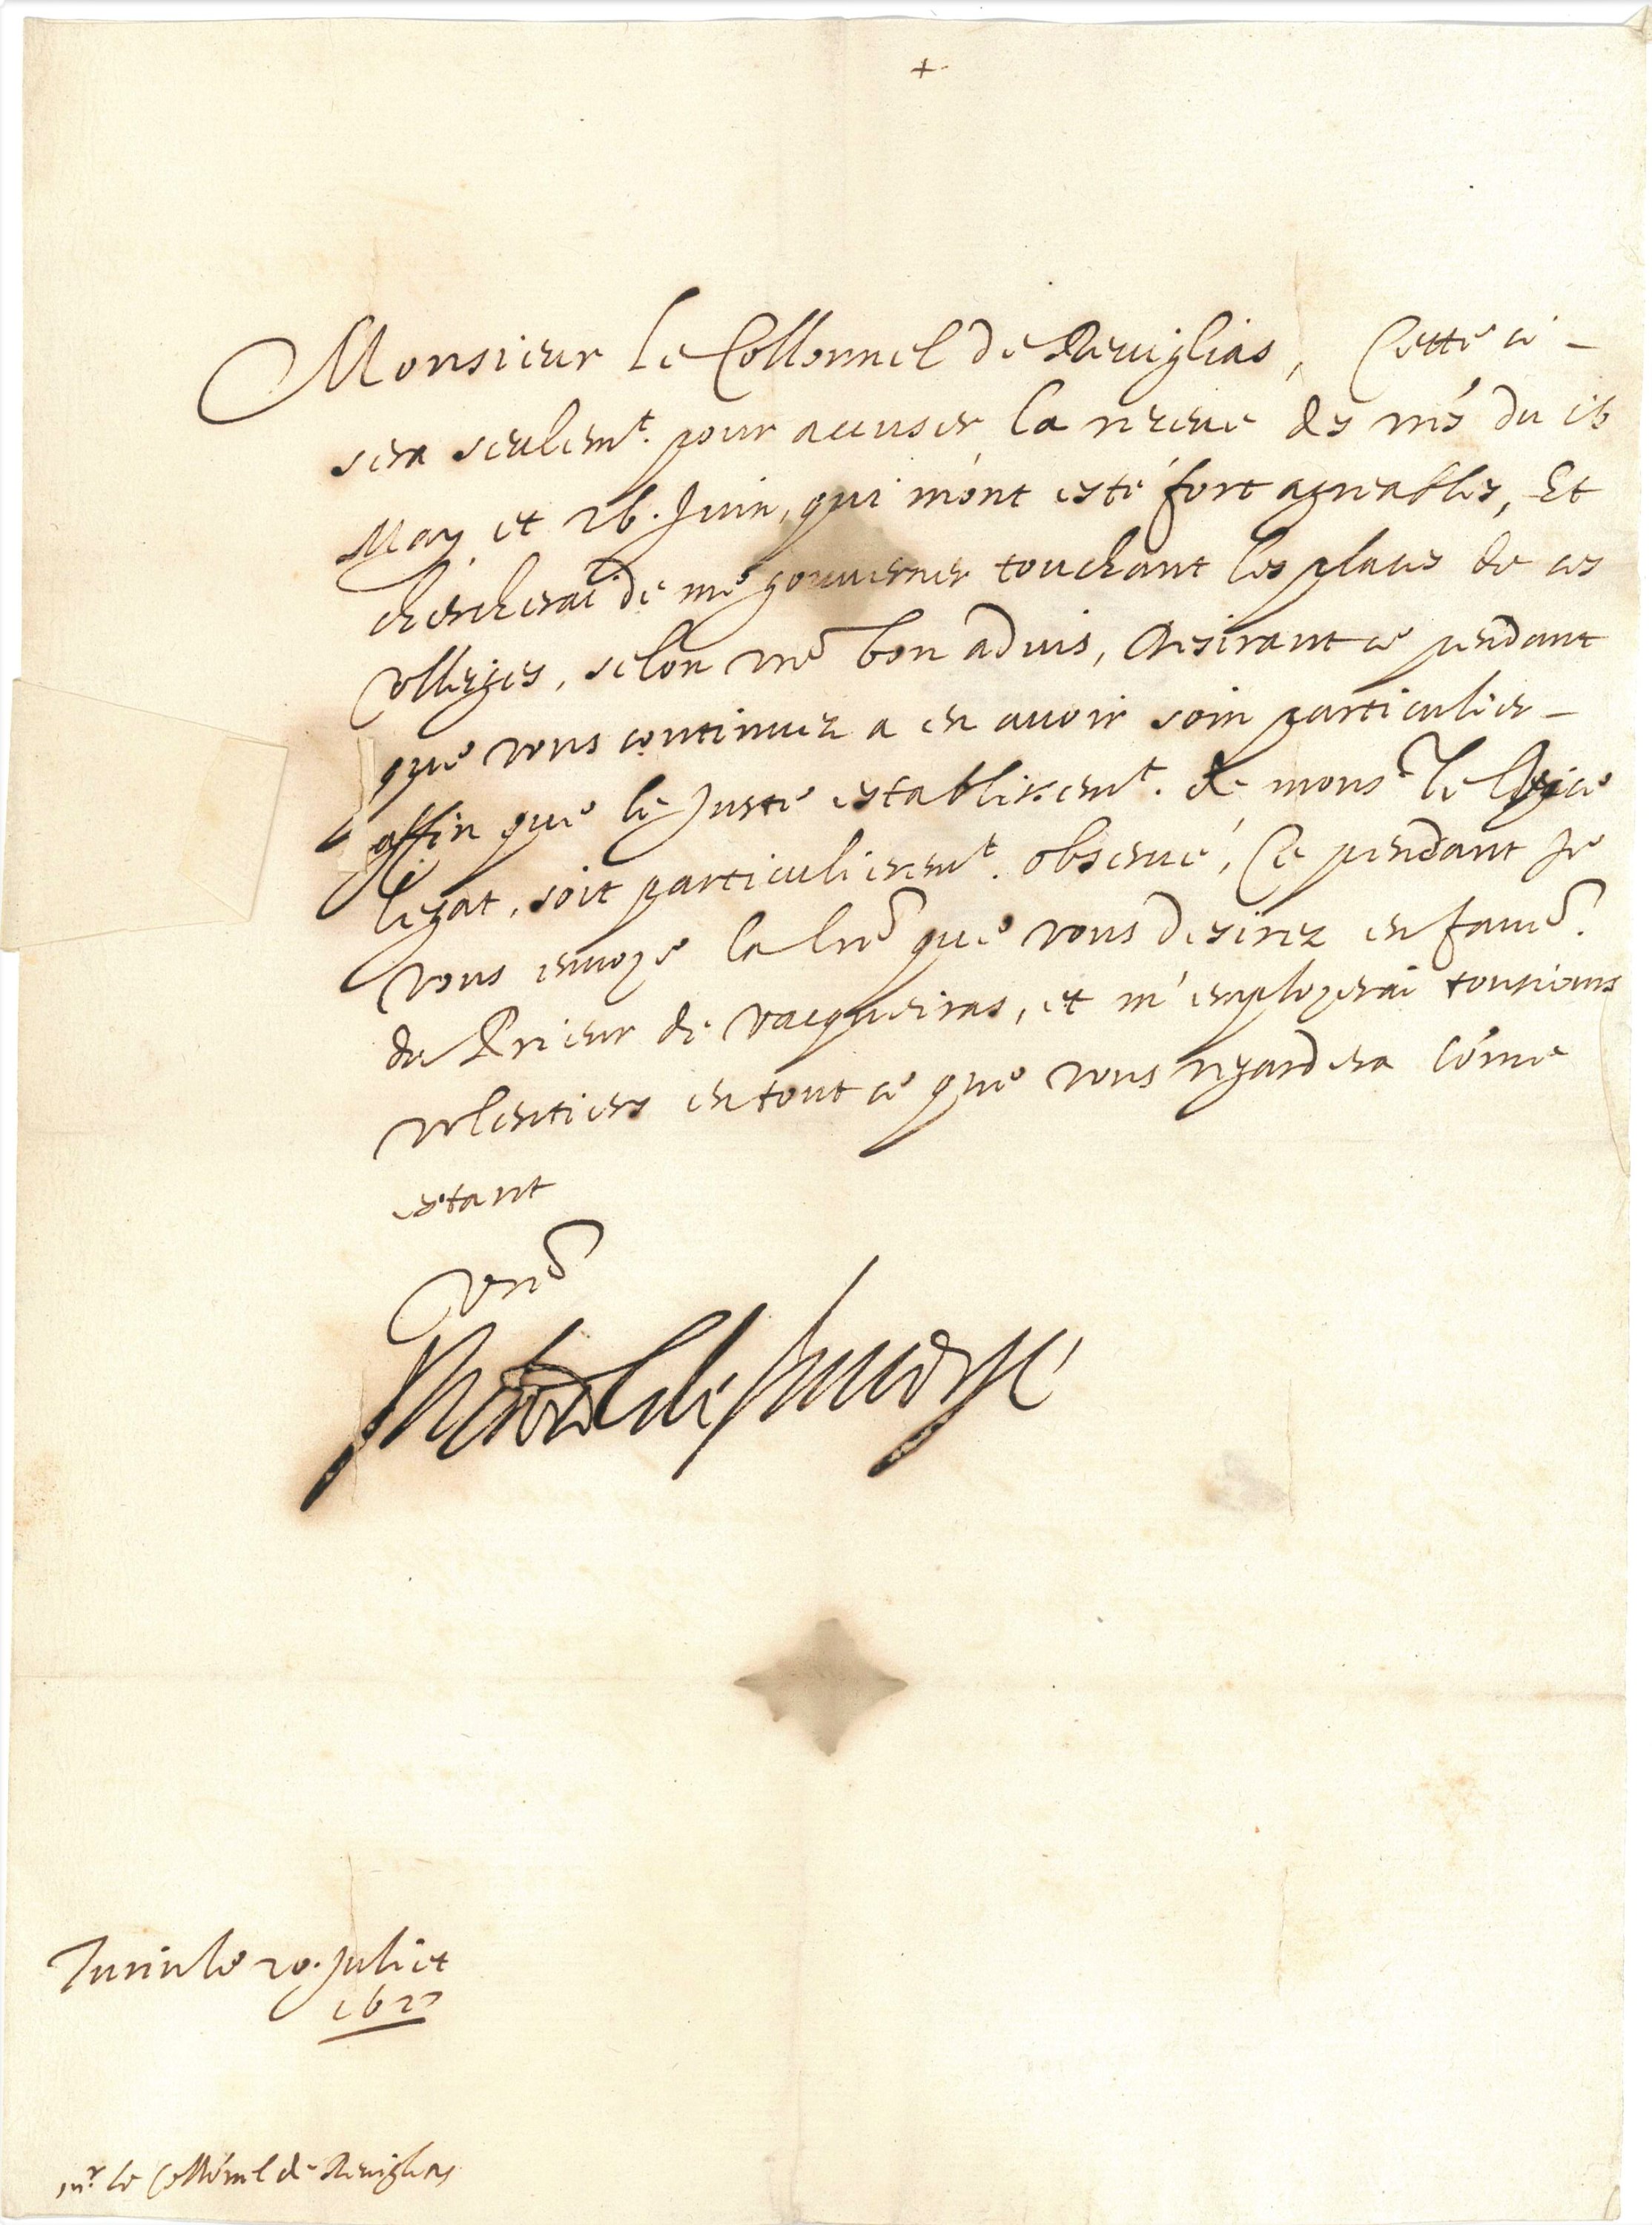 +
Monsieur le Collonnel de Reviglias, Cette ci -
sera seulemt. pour accuser la receue des vrēs du 16
May et 26. Juin, qui m'ont esté fort agreables, Et
chercherai de me gouverner touchant les places de ces
colleges, selon vrē bon advis, desirant ce pendant
que vous continuez a en avoir soin particulier -
affin que le Juste establissemt. de monsr le
legat, soit particulieremt. observé, Ce pendant Je
vous envoye la lrē que vous desirez en faveur
du Prieur de vacqueiras, et m'employerai tousiours
volentiers en tout ce que vous regardera cōme
estant
Vrē
Turin le 20. Juliet
162
mr. le Collōnel de Reviglias